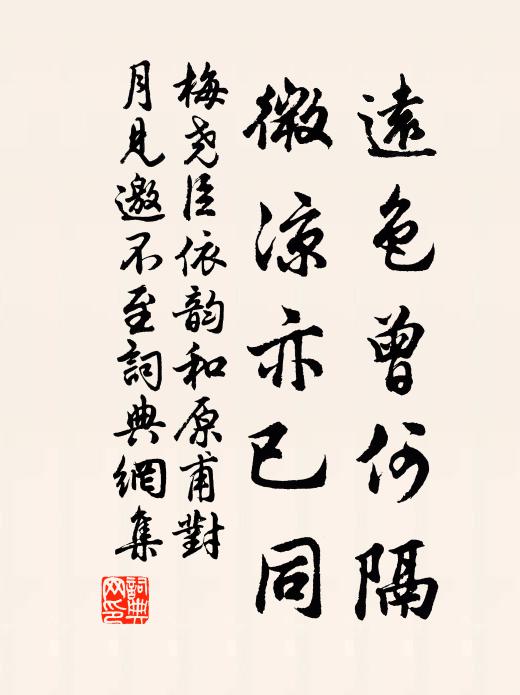 遠色曾何隔
微涼亦已同
梅尧臣依韵和原甫對
月見邀不至詞典網集
詞典
网印